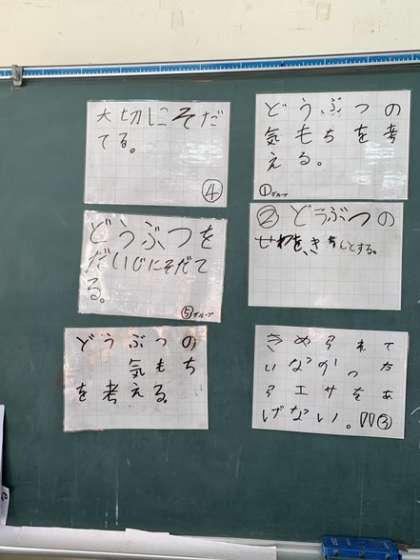 大切にそだ
てる。
④
どうぶつの
気もちを考
える。
①グループ
どうぶつを
だいじにそだて
る。
⑤グループ
②どうぶつの
せわを、きちんとする。
どうぶつの
気もち
を考える。
きめられて
いなかった
らエサをあ
げない。
③